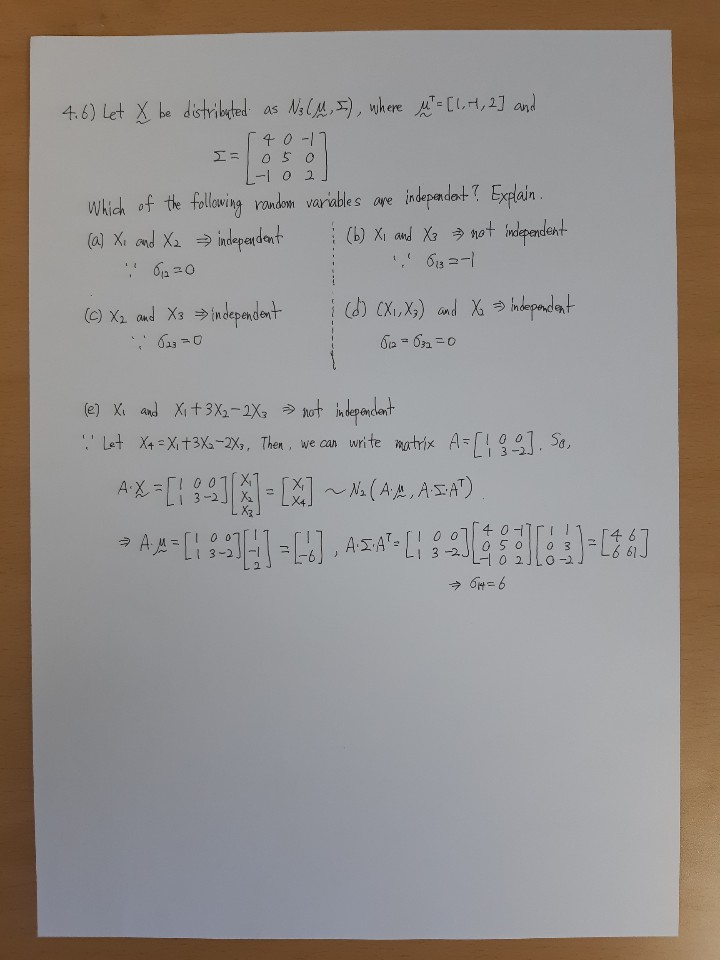 4.6) Let X be distributed as N₃(μ, Σ), where μᵀ=[1,-1,2] and
Σ = [4 0 -1
0 5 0
-1 0 2]
Which of the following random variables are independent? Explain.
(a) X₁ and X₂ ⇒ independent
∵ σ₁₂=0
(b) X₁ and X₃ ⇒ not independent
∵ σ₁₃=-1
(c) X₂ and X₃ ⇒ independent
∵ σ₂₃=0
(d) (X₁,X₃) and X₂ ⇒ independent
σ₁₂ = σ₃₂ = 0
(e) X₁ and X₁+3X₂-2X₃ ⇒ not independent
∵ Let X₄=X₁+3X₂-2X₃, Then, we can write matrix A=[1 0 0; 1 3 -2]. So,
A·X = [1 0 0; 1 3 -2][X₁; X₂; X₃] = [X₁; X₄] ~ N₂(A·μ, A·Σ·Aᵀ)
⇒ A·μ = [1 0 0; 1 3 -2][1; -1; 2] = [1; -6], A·Σ·Aᵀ = [1 0 0; 1 3 -2][4 0 -1; 0 5 0; -1 0 2][1 1; 0 3; 0 -2] = [4 6; 6 61]
⇒ σ₁₄=6